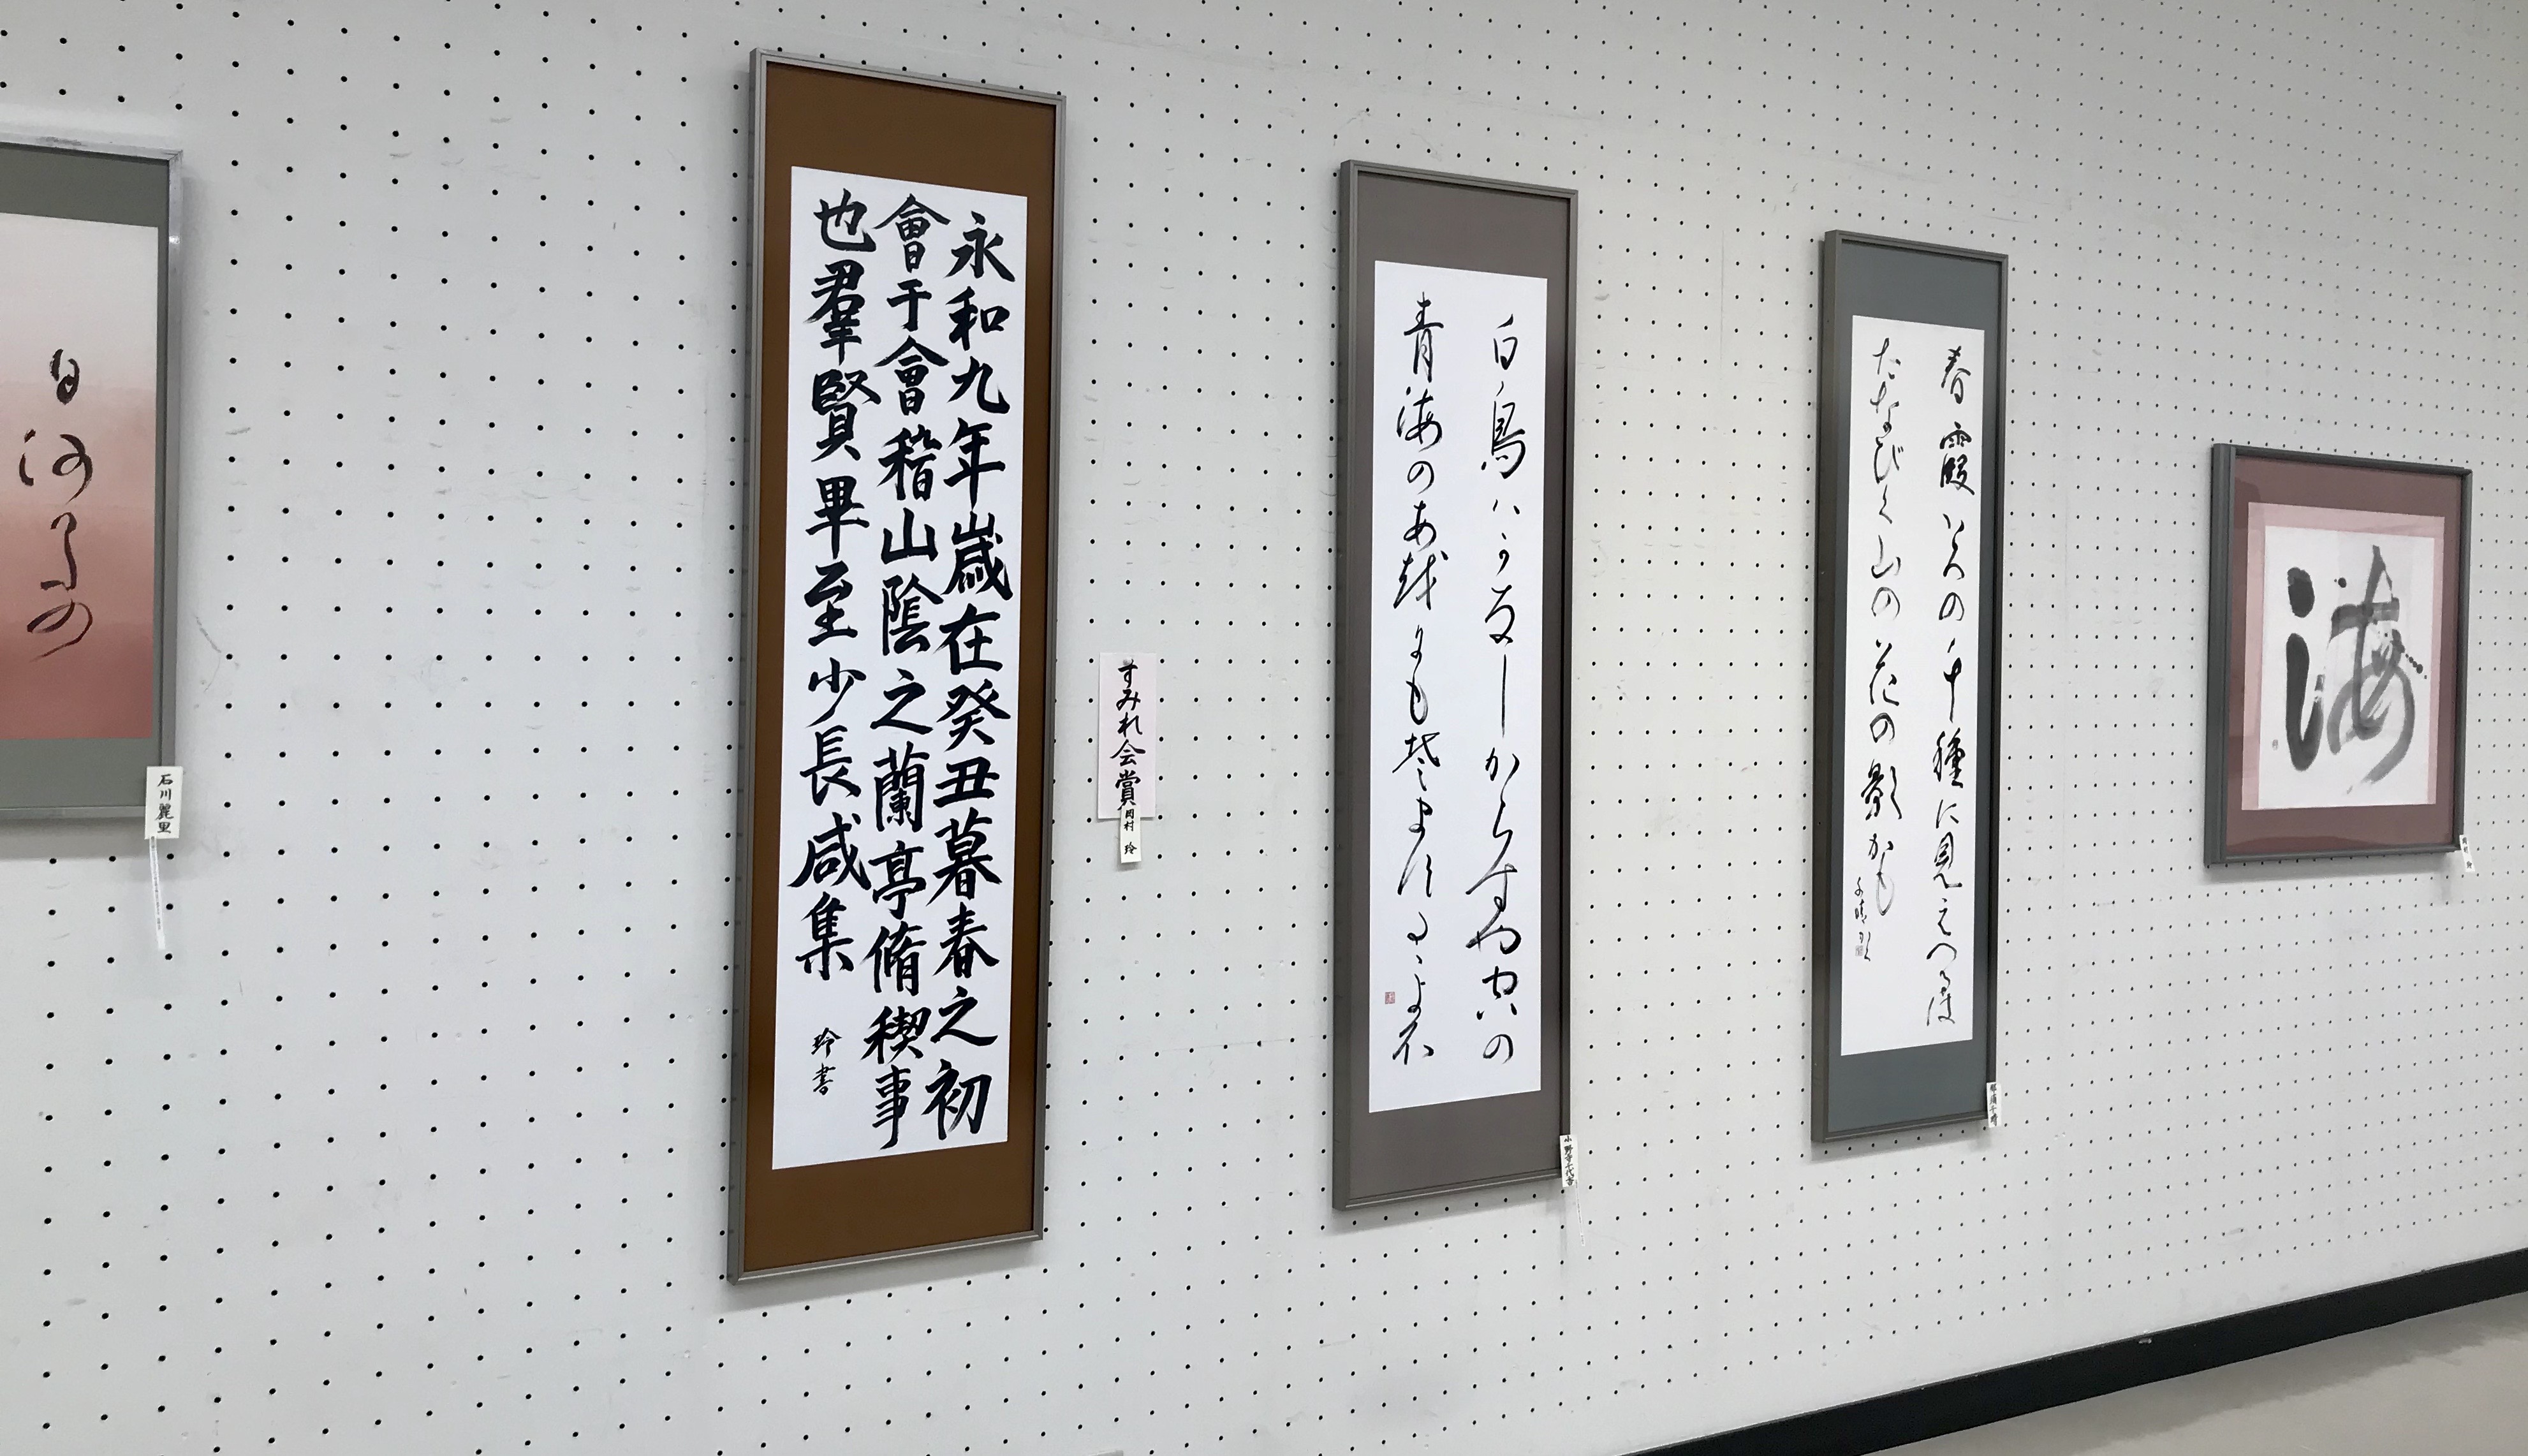 白河
石川麗里
永和九年歳在癸丑暮春之初
會于會稽山陰之蘭亭脩禊事
也羣賢畢至少長咸集
玲書
すみれ会賞
岡村 玲
白鳥ハかなしからずや空の
青海のあ越にも染まずただよふ
春霞いろの千種に見えつるは
たなびく山の花の影かも
海